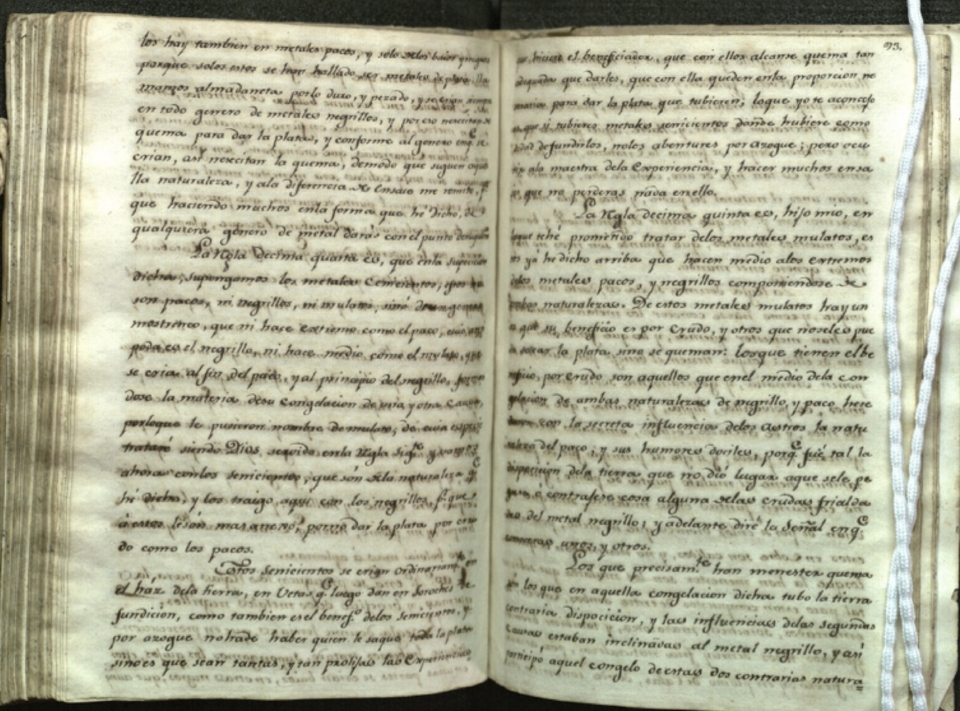 los háy tambien en metales pacos, y solo
porque solos estos se han hallado ser metales de
almadaneta por lo duro, y pezado, y se crian
en todo genero de metales negrillos, y por eso
quema para dar la plata, y conforme al genero en q̃ se
crian, asi nesecitan la quema, demodo que siguen aque
lla naturaleza, y ala diferencia de Ensaie me remito,
que haciendo muchos enla forma que hé dicho, de
qualquiera género de metal darás con el punto
La Regla Decima quarta es, que enla
dicha, supongamos los metales Cenicientos,
son pacos, ni negrillos, ni mulatos, sino
mostrenco, que ni hace extremo como el paco,
el negrillo, ni hace medio, como el mulato,
se cria al fin del paco, y al principio del negrillo,
dose la materia desu congelacion de una y otra
porloque le pusieron nombre de mulato, de cuia
trataré siendo Dios servido enla Regla sigᵗᵉ
ahora conlos senicientos, que són dela naturaleza q̃
hé dicho, y los traigo aqui con los negrillos, p.ʳ que
á estos lesón mas por no dar la plata por cru
do como los pacos.
Estos senicientos se crian ordinariamᵗᵉ en
el haz dela tierra, en Vetas q̃ luego dan en Soroches de
fundicion, como tambien es el benefᵒ delos semiciento, y
por azogue nohade haber quien le saque toda la plata
sinoes que sean tantas, y tan prolijas las Experiencias
93.
hiciere el beneficiador, que con ellos alcance quema tan
que darles, que con ella queden enla proporcion ne
para dar la plata que tubieren; loque yo te aconcejo
que si tubieres metales senicientos donde hubiere como
defundirlos, noles abentures por azogue; pero ocu
ala maestra dela Experiencia, y hacer muchos ensa
que no perderas nada en ello.
La Regla decima quinta es, hijo mio, en
que tehé prometido tratar delos metales mulatos, es
ya hé dicho arriba que hacen medio alos extremos
metales pacos, y negrillos componiendose de
naturalezas. De estos metales mulatos hay un
que su beneficio es por Crudo, y otros que noseles pue
sacar la plata sino se queman: losque tienen elbe
por Crudo son aquellos que enel medio dela con
de ambas naturalezas de negrillo, y paco
con la secreta influencia delos Astros la natu
del paco, y sus humores dociles, porq̃ fué tal la
disposicion dela tierra que no dió lugar aque sele pe
ó contrajese cosa alguna delas crudas frialda
del metal negrillo; y adelante diré la Señal enq̃
unos, y otros.
Los que precisamᵗᵉ han menester quema
los que en aquella congelacion dicha tubo la tierra
contraria disposicion, y las influencias delas segundas
causas estaban inclinadas al metal negrillo, y así
participó aquel congelo de estas dos contrarias natura